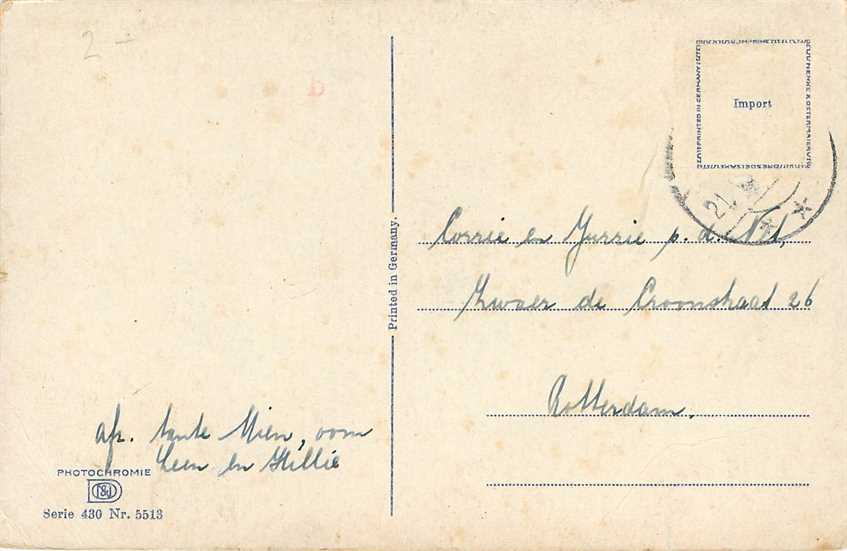 2-
d
Import
21
Printed in Germany.
Corrie en Jurrie v. d. Nol,
Zwaer de Croonstraat 26
Rotterdam.
afz. tante Mien, oom
Leen en Willie
PHOTOCHROMIE
Serie 430 Nr. 5513